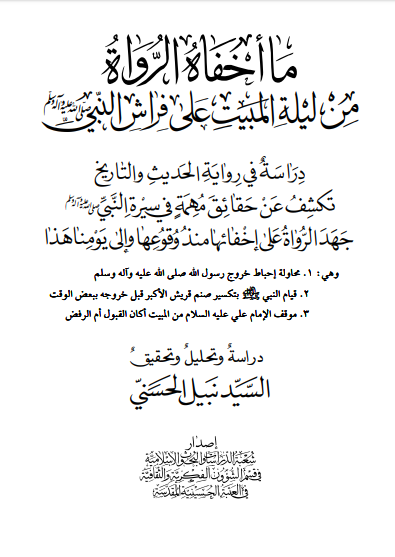 مَا أَخْفَاهُ الرُّوَاةُ
مِنْ لَيْلَةِ الْمَبِيتِ عَلَى فِرَاشِ النَّبِيِّ صلى الله عليه وآله وسلم
دِرَاسَةٌ فِي رِوَايَةِ الحَدِيثِ وَالتَّارِيخِ
تَكْشِفُ عَنْ حَقَائِقَ مُهِمَّةٍ فِي سِيرَةِ النَّبِيِّ صلى الله عليه وآله وسلم
جَهَدَ الرُّوَاةُ عَلَى إِخْفَائِهَا مُنْذُ وُقُوعِهَا وَإِلَى يَوْمِنَا هَذَا
وهي : ١. محاولة إحباط خروج رسول الله صلى الله عليه وآله وسلم
٢. قيام النبي ﷺ بتكسير صنم قريش الأكبر قبل خروجه ببعض الوقت
٣. موقف الإمام علي عليه السلام من المبيت أكان القبول أم الرفض
دراسةٌ وتحليلٌ وتحقيقٌ
السَيِّد نبيل الحَسَنيّ
إصدار
شعبة الدراسات والبحوث الإسلامية
في قسم الشؤون الفكرية والثقافية
في العتبة الحسينية المقدسة